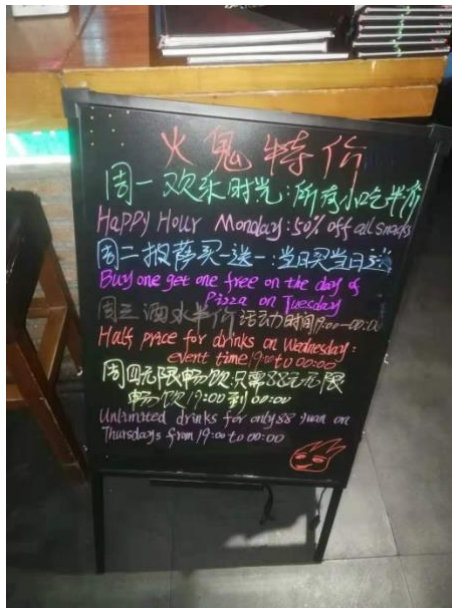 火鬼特价
周一欢乐时光:所有小吃半价
Happy Hour Monday: 50% off all snacks
周二披萨买一送一:当日买当日送
Buy one get one free on the day of
Pizza on Tuesday
周三酒水半价 活动时间19:00-00:00
Half price for drinks on Wednesday:
event time 19:00 to 00:00
周四无限畅饮只需88元无限
畅饮19:00到00:00
Unlimited drinks for only 88 yuan on
Thursdays from 19:00 to 00:00